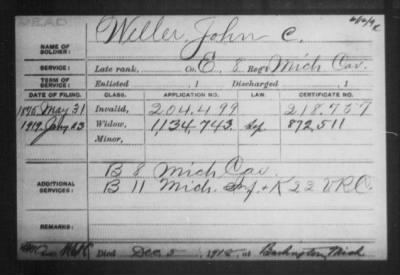 DEAD
NAME OF SOLDIER: Weller, John C.
SERVICE: Late rank, Co. E, 8 Reg't Mich Cav.
TERM OF SERVICE: Enlisted 1 Discharged 1
DATE OF FILING. CLASS. APPLICATION NO. LAW. CERTIFICATE NO.
1876 May 31 Invalid, 204.499 218.757
1919 Jany 23 Widow, 1,134.743 872,511
Minor,
ADDITIONAL SERVICES:
B 8 Mich Cav.
B 11 Mich. Inf. + K 22 V.R.C.
REMARKS:
Died Dec 5 Mich